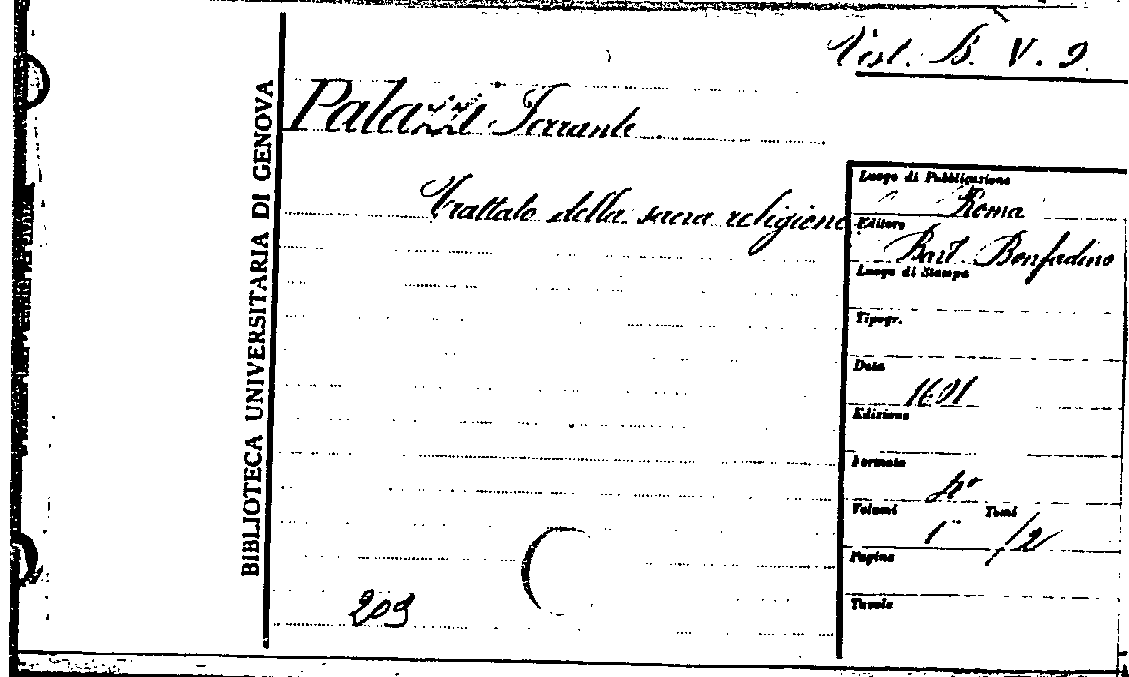 Vist. B. V. 9.
BIBLIOTECA UNIVERSITARIA DI GENOVA
Palazzi Ferrante
Trattato della sacra religione
Luogo di Pubblicazione
Roma
Editore
Bart. Bonfadino
Luogo di Stampa
Tipogr.
Data
1601
Edizione
Formato
4°
Volumi Tomi
1 /2
Pagine
Tavole
209